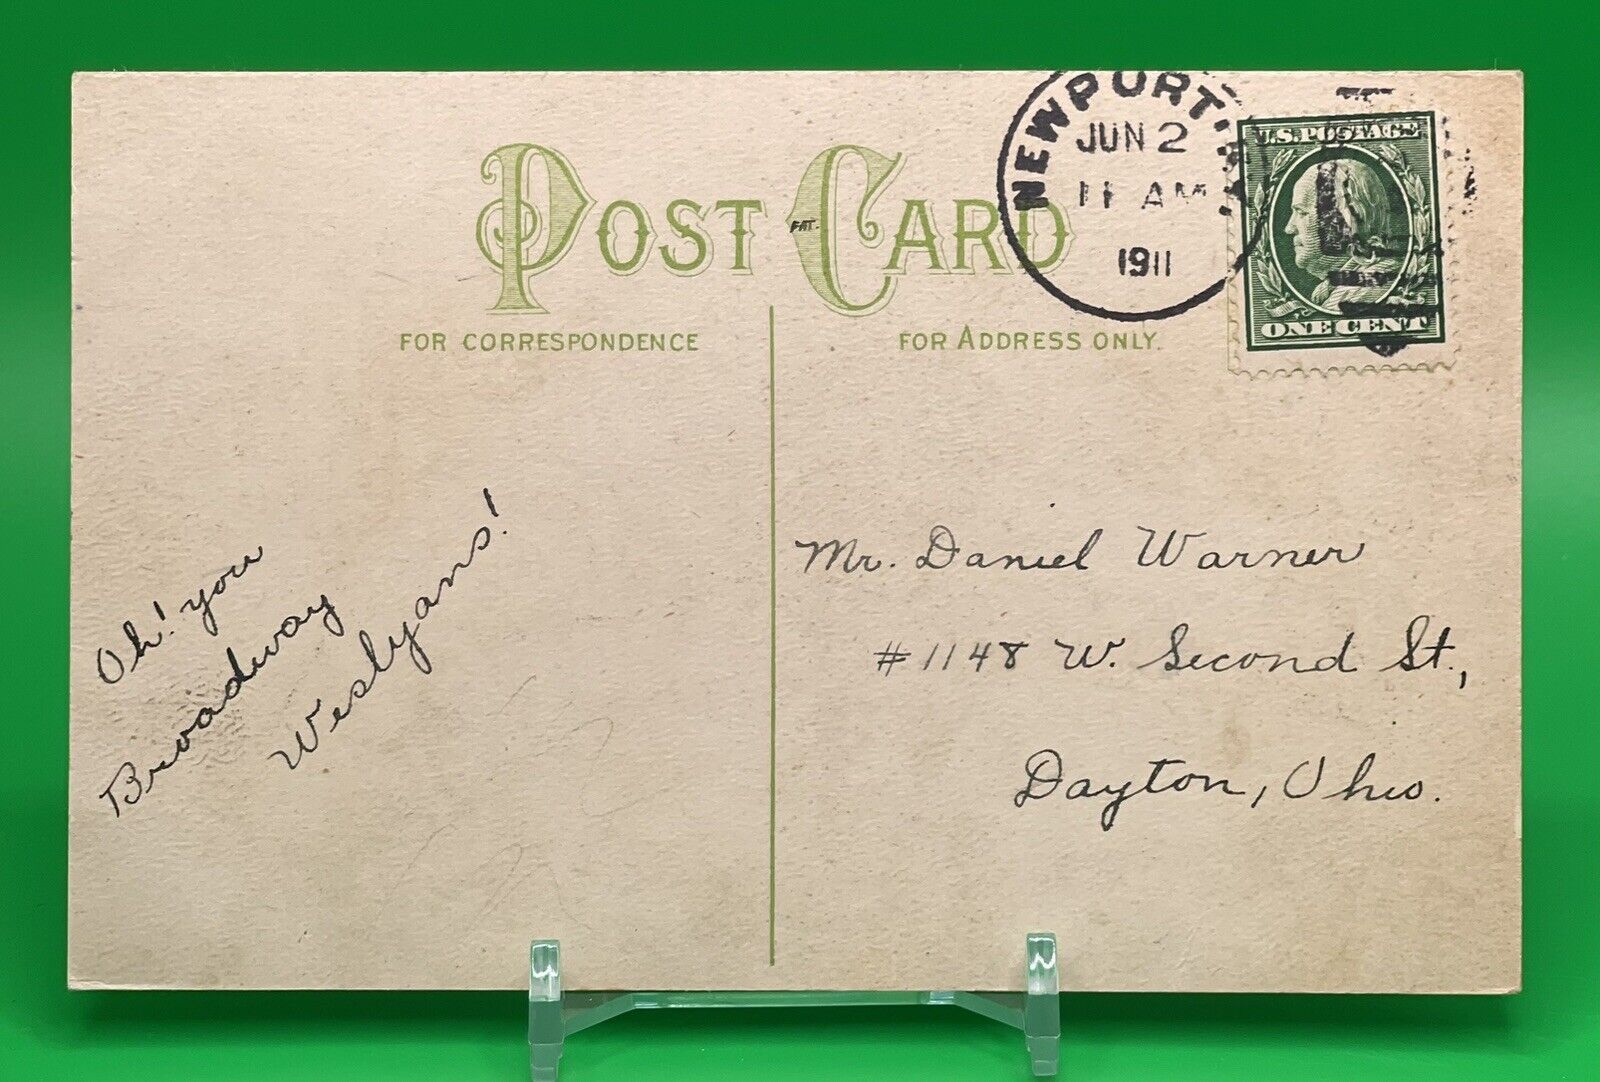 POST CARD
FOR CORRESPONDENCE
FOR ADDRESS ONLY.
NEWPORT,
JUN 2
11 AM
1911
U.S. POSTAGE
ONE CENT
Oh! you
Broadway
Weslyans!
Mr. Daniel Warner
#1148 W. Second St.,
Dayton, Ohio.